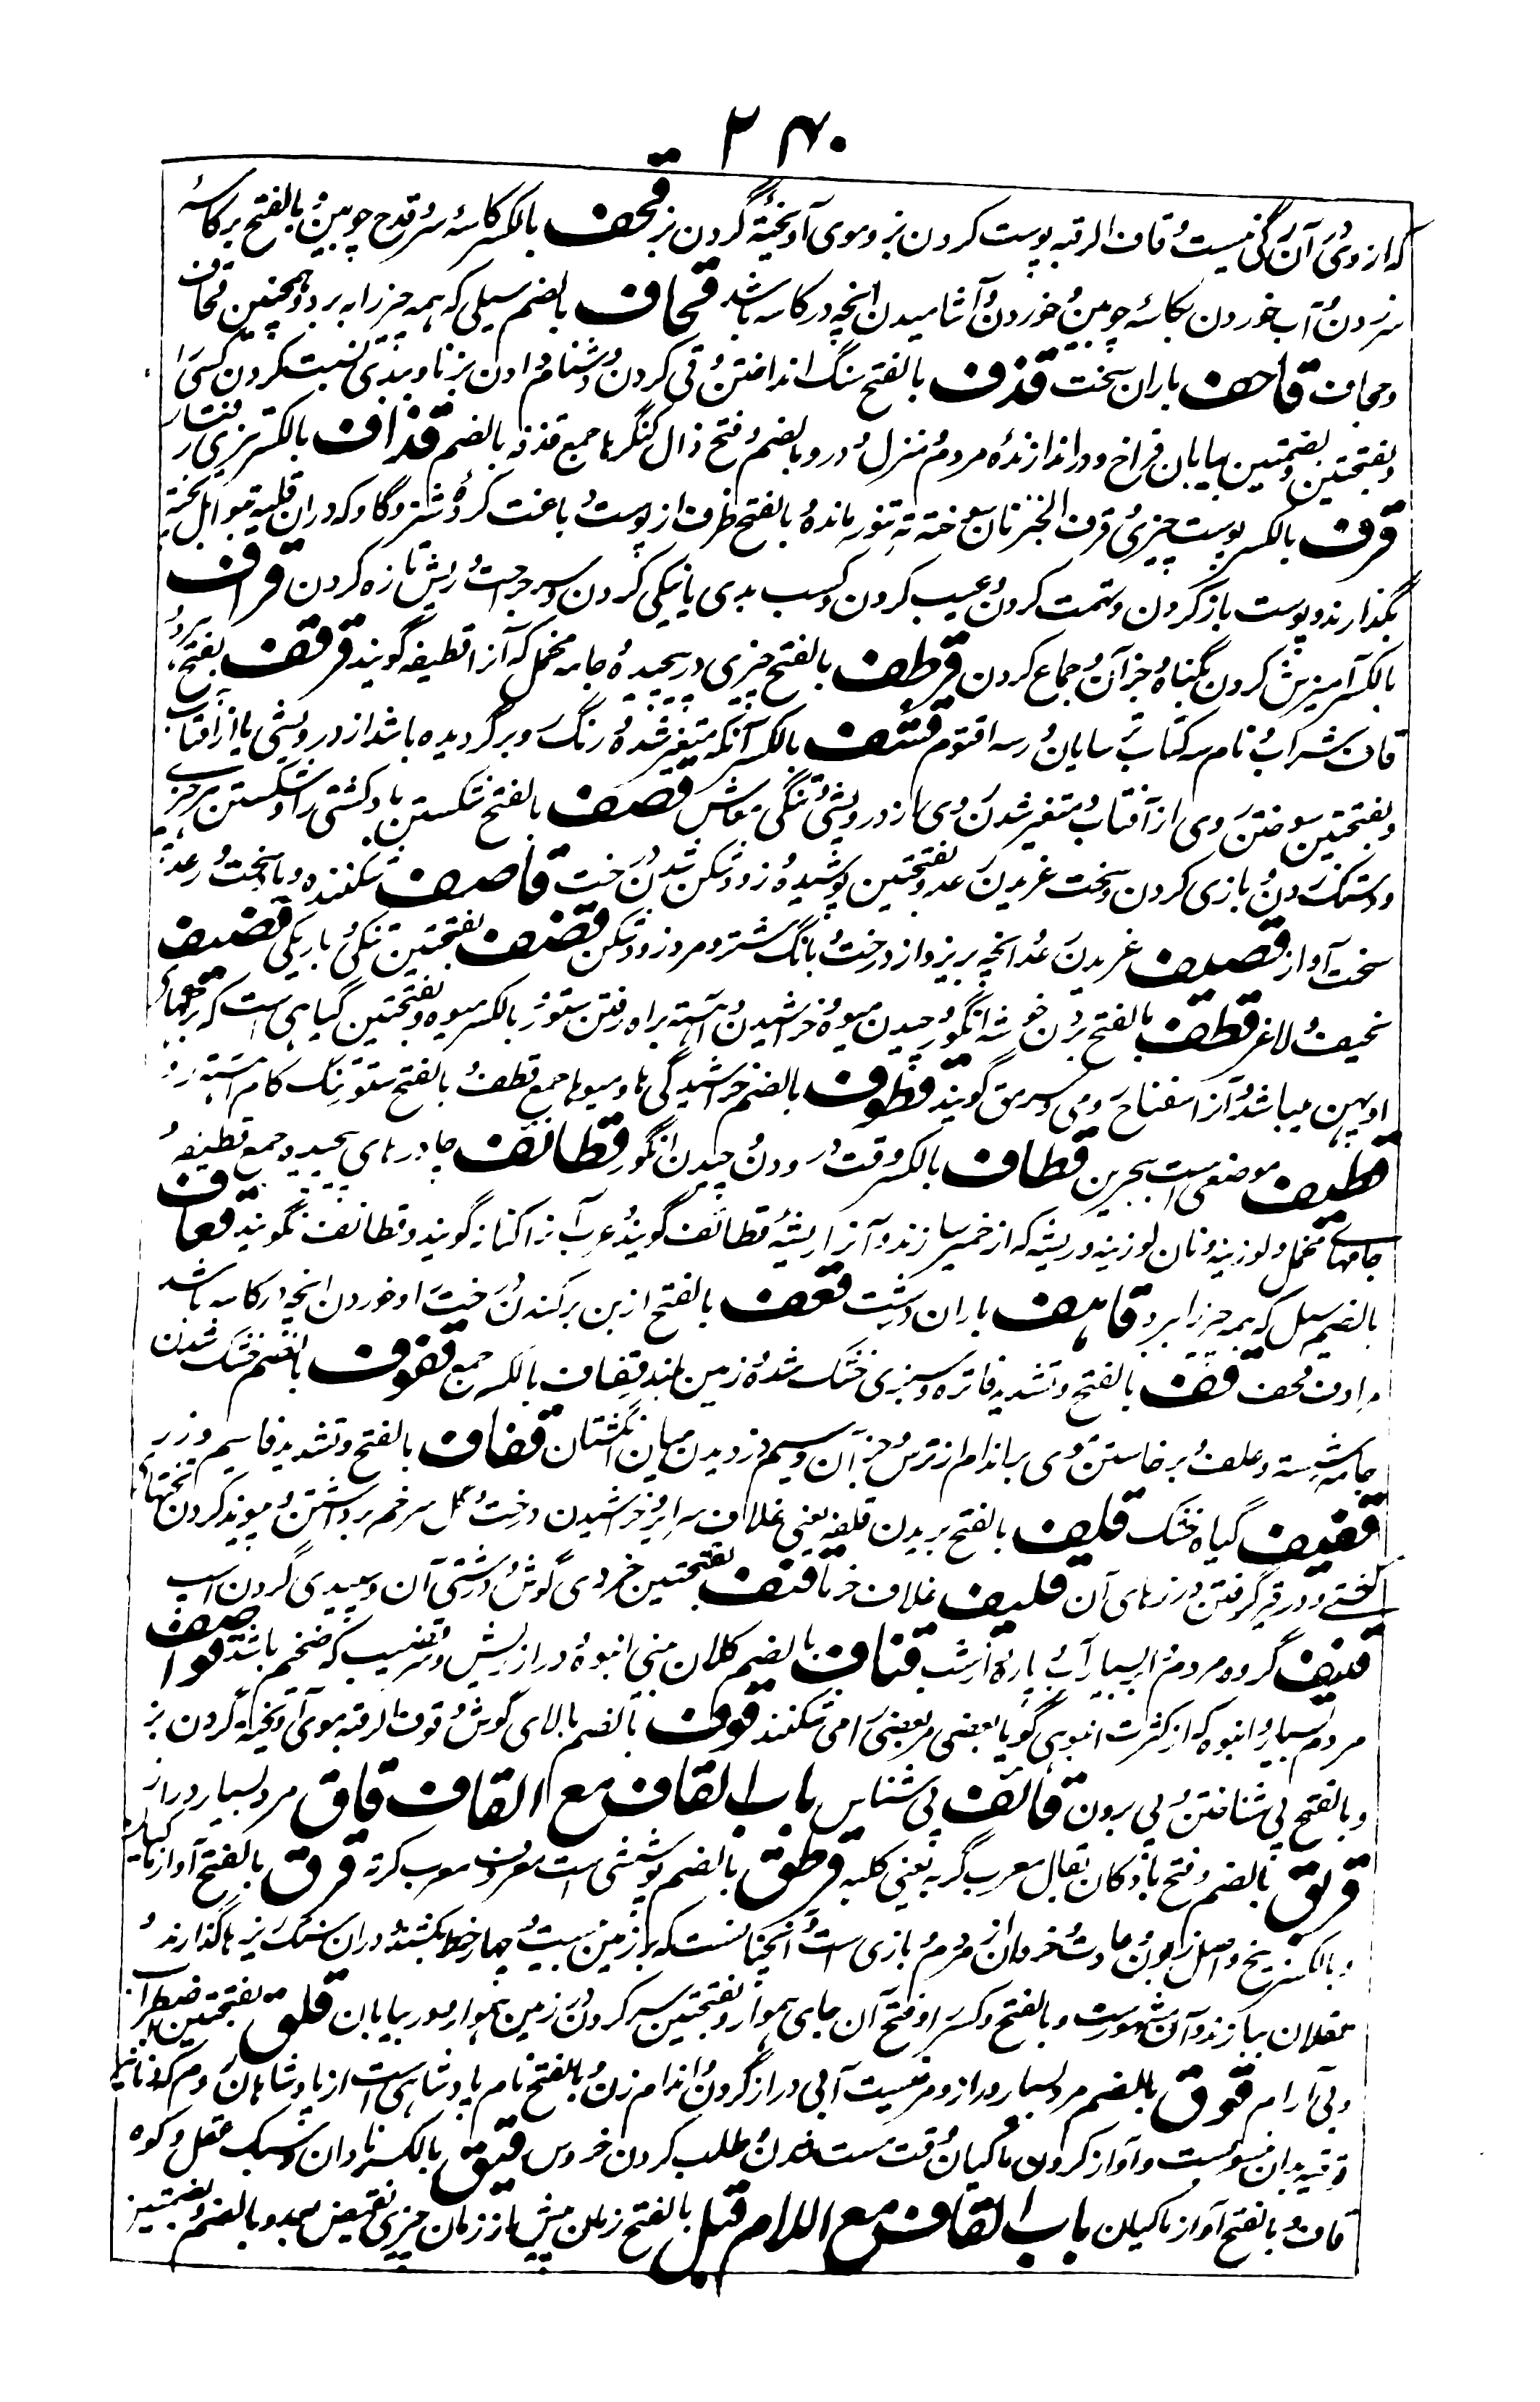 ۲۴۰
که از وی در آن رگی نیست و قاف الرقبه پوست گردن بز و موی آویخته گردن بز قحف بالکسر کاسهٔ سر و قدح چوبین و بالفتح بر کاسهٔ
سر زدن و آب خوردن بکاسهٔ چوبین و خوردن و آشامیدن آنچه در کاسه باشد قحاف بالضم سیلی که همه چیز را به برد و همچنین قحاف
و جحاف قاحف باران سخت قذف بالفتح سنگ انداختن و قی کردن و دشنام دادن بزنا و ببدی نسبت کردن کسی را
و بفتحتین و بضمتین بیابان فراخ و دور اندازنده مردم و منزل دور و بالضم و فتح ذال کنگرها جمع قذفه بالضم قذاف بالکسر تیزی رفتار
قرف بالکسر پوست چیزی و قرف الخبز نان سوخته ته تنور مانده و بالفتح ظرف از پوست دباغت کرده شتر و گاو که در ان قلیه بتوابل پخته
بگذارند و پوست باز کردن و تهمت کردن و عیب کردن و کسب بدی یا نیکی کردن و سر جراحت و ریش تازه کردن قراف
بالکسر آمیزش کردن بگناه و جز آن و جماع کردن قرطف بالفتح چیزی در پیچیده و جامه مخمل که آنرا قطیفه گویند قرقف بفتح هر دو
قاف شراب و نام سه کتاب ترسایان در سه اقنوم قشف بالکسر آنکه متغیر شده رنگ و برگردیده باشد از درویشی یا از آفتاب
و بفتحتین سوختن روی از آفتاب و متغیر شدن روی از درویشی و تنگی معاش قصف بالفتح شکستن باد کشتی را و شکستن هر چیز
و دستک زدن و بازی کردن و سخت غریدن رعد و بفتحتین پوشیده و زود شکن شدن درخت قاصف شکننده و باد سخت و رعد
سخت آواز قصیف غریدن رعد و آنچه بریزد از درخت و بانگ شتر و مرد زود شکن قضف بفتحتین تنکی و باریکی قضیف
نحیف و لاغر قطف بالفتح بریدن خوشه انگور و چیدن میوه و خراشیدن و آهسته براه رفتن ستور و بالکسر میوه و بفتحتین گیاهی است که برگهای
او پهن میباشد و آنرا اسفناج رومی و سرمق گویند قطوف بالضم خراشیدگی ها و میوها جمع قطف و بالفتح ستور تنگ کام آهسته رو
قطیف موضعی است ببحرین قطاف بالکسر وقت درودن و چیدن انگور قطائف چادرهای پیچیده جمع قطیفه و
جامهای مخمل و لوزینه و نان لوزینه و رشته که از خمیر سازند و آنرا رشته قطائف گویند و عرب آنرا کنافه گویند و قطائف نگویند قعاف
بالضم سیل که همه چیز را ببرد قاعف باران درشت قعف بالفتح از بن برکندن درخت را و خوردن آنچه در کاسه باشد
مرادف قحف قف بالفتح و تشدید فا تره و سبزی خشک شده و زمین بلند قفاف بالکسر جمع قفوف بالضم خشک شدن
جامه شسته و علف و برخاستن موی بر اندام از ترس و جز آن و سیم دزدیدن میان انگشتان قفاف بالفتح و تشدید فا سیم و زر
قفیف گیاه خشک قلف بالفتح بریدن قلفه یعنی غلاف سر ایر و خراشیدن درخت و گل سر خم برداشتن و پیوند کردن تختهای
کشتی و در قیر گرفتن درزهای آن قلیف غلاف خرما قنف بفتحتین خردی گوش و درشتی آن و سپیدی گردن اسپ
قنیف گروه مردم و ابر بسیار آب و پاره از شب قناف بالضم کلان بینی و انبوه و دراز ریش و سر قضیب که ضخیم باشد قواصف
مردم بسیار و انبوه که از کثرت انبوهی گویا بعضی مر بعضی را می شکنند قوف بالضم بالای گوش و قوف الرقبه موی آویخته گردن بز
و بالفتح پی شناختن و پی بردن قائف پی شناس باب القاف مع القاف قاق مرد بسیار دراز
قربق بالضم و فتح با دکان بقال معرب گربه یعنی کلبه قرطق بالضم پوششی است معروف معرب کرته قرق بالفتح آواز ماکیان
و بالکسر بیخ و اصل زبون و عادت و خردان از مردم و بازی است و آنچنانست که بر زمین بیست و چهار خط بکشند و دران سنگ ریزها گذارند و
بعقلان ببازند و آن مشهورست و بالفتح و کسر را و فتح آن جای هموار و بفتحتین سیر کردن در زمین هموار و در بیابان قلق بفتحتین اضطراب
و بی آرام قوق بالضم مرد بسیار دراز و مرغیست آبی دراز گردن و اندام زن و بالفتح نام پادشاهی است از پادشاهان روم که دنانیر
قوقیه بدان منسوبست و آواز کردن ماکیان وقت مست شدن و طلب کردن خروس قیق بالکسر نادان و سبک عقل و کوه
قاف و بالفتح آواز ماکیان باب القاف مع اللام قبل بالفتح زمان پیش از زمان چیزی نقیض بعد و بالضم و بضمتین